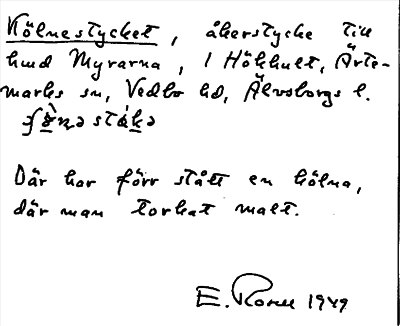 Kölnestycket, åkerstycke till
hmd Myrarna, i Hökhult, Ärte-
marks sn, Vedbo hd, Älvsborgs l.
Där har förr stått en kölna,
där man torkat malt.
E. 1949